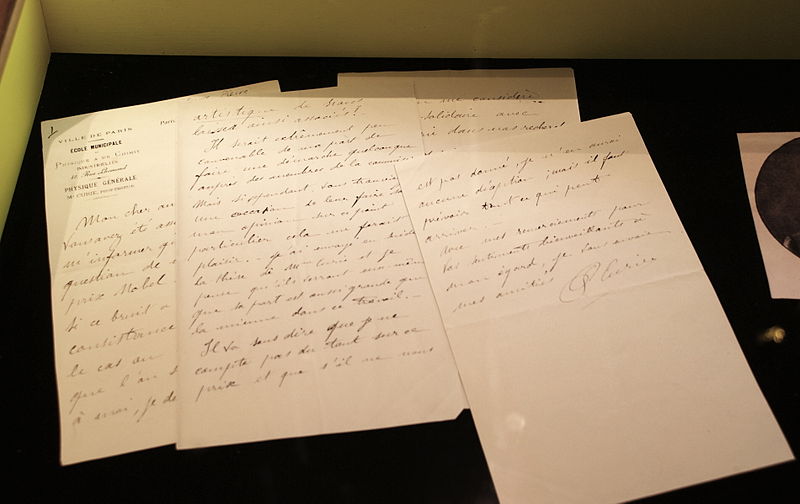 VILLE DE PARIS
ECOLE MUNICIPALE
PHYSIQUE & DE CHIMIE
INDUSTRIELLES
42, Rue Lhomond
PHYSIQUE GÉNÉRALE
M. CURIE, PROFESSEUR
PARIS
Mon cher
m'informer
question de
prix Nobel
Si ce bruit
consistance
le cas où
que l'on
à moi, je
artistique de
ainsi associés?
Il serait extrêmement peu
convenable de ma part de
faire une démarche quelconque
auprès des membres de la commission
Mais si cependant vous trouviez
une occasion de leur faire
mon opinion sur ce point
particulier cela me ferait
plaisir. — Je ai envoyé en Suède
la thèse de Mme Curie et je
pense qu'ils verront eux-même
que sa part est aussi grande que
la mienne dans ce travail. —
Il va sans dire que je ne
compte pas du tout sur ce
prix et que s'il ne nous
me considère
solidaire avec
dans nos recherches
est pas donné, je n'en aurai
aucune déception, mais il faut
prévoir tout ce qui peut
arriver.
Avec mes remerciements pour
vos sentiments bienveillants à
mon égard, je vous envoie
mes amitiés
P Curie